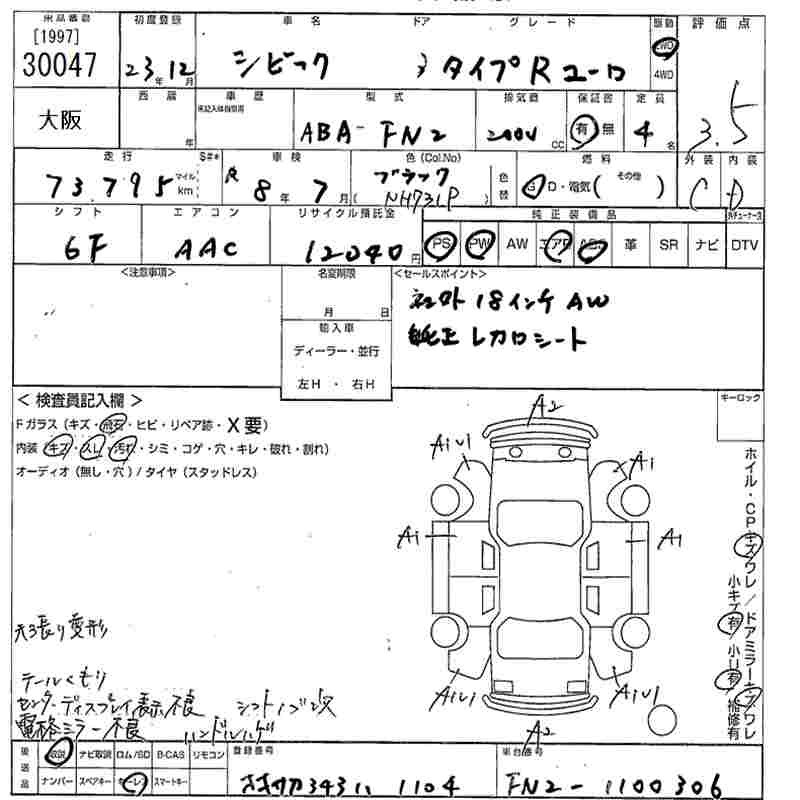 出品番号 初度登録 車名 ドア グレード 駆動 評価点
[1997]
30047 23年12月 シビック 3 タイプR ユーロ 2WD
4WD
3.5
大阪 西暦 車歴 型式 排気量 保証書 定員
年 ABA-FN2 200V cc 有 無 4名
走行 S#* 車検 色(Col.No) 燃料 外装 内装
73,795 マイル km 8年 7月 ブラック (NH731P) 色替 G D・電気( その他 ) C D
シフト エアコン リサイクル預託金 純正装備品
6F AAC 12040円 PS PW AW エアB ABS 革 SR ナビ DTV
<注意事項> 名変期限 <セールスポイント>
月 日 社外18インチAW
輸入車 純正レカロシート
ディーラー・並行
左H ・ 右H
< 検査員記入欄 > キーロック
Fガラス(キズ・飛石・ヒビ・リペア跡・X要)
内装(キズ・スレ・汚れ・シミ・コゲ・穴・キレ・破れ・割れ)
オーディオ(無し・穴)/タイヤ(スタッドレス)
A2
A1U1 A1
A1 A1
A1U1 A1U1
A2
ホイル・CPキズワレ/ドアミラーキズワレ
小キズ有 小U有 補修有
天張り変形
テールくもり
センターディスプレイ表示不良 シフトノブ欠
電格ミラー不良 ハンドルハゲ
後送品 取説 ナビ取説 ロム/SD B-CAS リモコン 登録番号 車台番号
ナンバー スペアキー キーレス スマートキー 1104 FN2-1100306